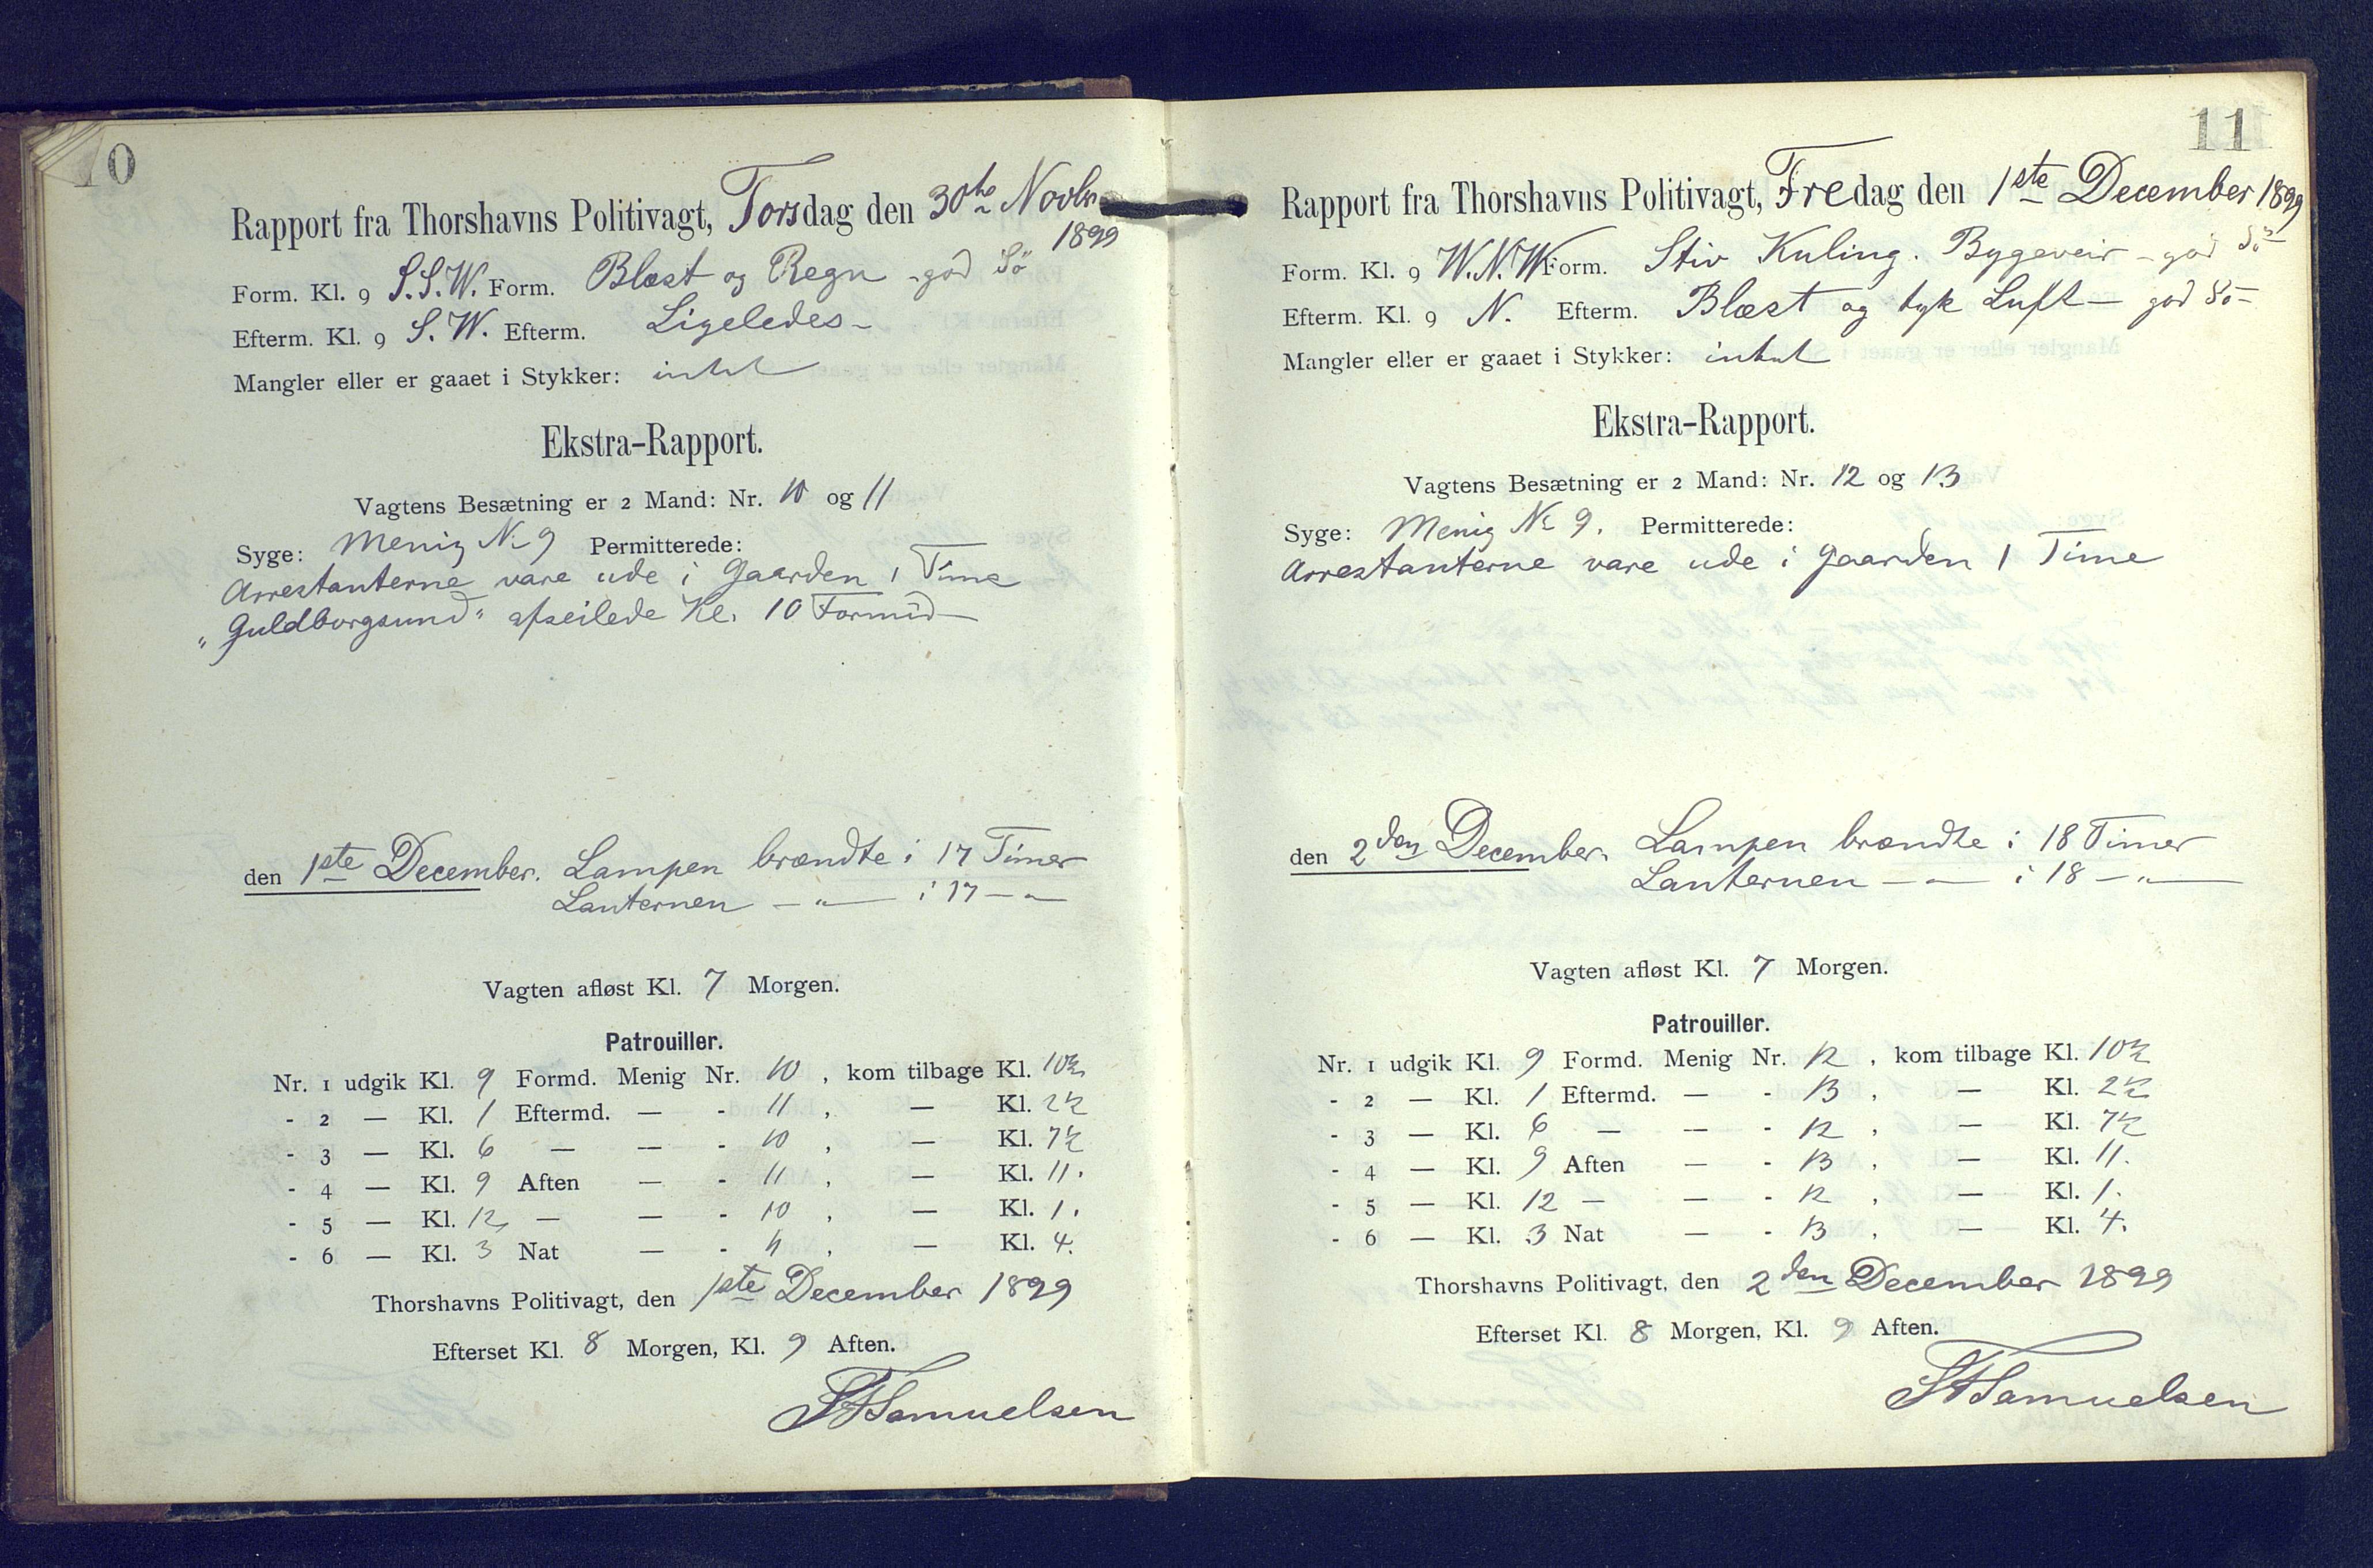 10
Rapport fra Thorshavns Politivagt, Torsdag den 30te Novbr
1899
Form. Kl. 9 S.S.W. Form. Blæst og Regn - god Sö
Efterm. Kl. 9 S.W. Efterm. Ligeledes -
Mangler eller er gaaet i Stykker: intet
Ekstra-Rapport.
Vagtens Besætning er 2 Mand: Nr. 10 og 11
Syge: Menig No 9 Permitterede:
Arrestanterne vare ude i Gaarden 1 Time
"Guldborgsund" afseilede Kl. 10 Formd -
den 1ste December. Lampen brændte i 17 Timer
Lanternen — " — i 17 — " —
Vagten afløst Kl. 7 Morgen.
Patrouiller.
Nr. 1 udgik Kl. 9 Formd. Menig Nr. 10, kom tilbage Kl. 10½
- 2 — Kl. 1 Eftermd. — - 11, — Kl. 2½
- 3 — Kl. 6 — — - 10, — Kl. 7½
- 4 — Kl. 9 Aften — - 11, — Kl. 11.
- 5 — Kl. 12 — — - 10, — Kl. 1.
- 6 — Kl. 3 Nat — - 11, — Kl. 4.
Thorshavns Politivagt, den 1ste December 1899
Efterset Kl. 8 Morgen, Kl. 9 Aften.
Samuelsen
11
Rapport fra Thorshavns Politivagt, Fredag den 1ste December 1899
Form. Kl. 9 W.N.W Form. Stiv Kuling. Bygeveir - god Sö -
Efterm. Kl. 9 N. Efterm. Blæst og tyk Luft — god Sö -
Mangler eller er gaaet i Stykker: intet
Ekstra-Rapport.
Vagtens Besætning er 2 Mand: Nr. 12 og 13
Syge: Menig No 9. Permitterede:
Arrestanterne vare ude i Gaarden 1 Time
den 2den December. Lampen brændte i 18 Timer
Lanternen — " — i 18 — " —
Vagten afløst Kl. 7 Morgen.
Patrouiller.
Nr. 1 udgik Kl. 9 Formd. Menig Nr. 12, kom tilbage Kl. 10½
- 2 — Kl. 1 Eftermd. — - 13, — Kl. 2½
- 3 — Kl. 6 — — - 12, — Kl. 7½
- 4 — Kl. 9 Aften — - 13, — Kl. 11.
- 5 — Kl. 12 — — - 12, — Kl. 1.
- 6 — Kl. 3 Nat — - 13, — Kl. 4.
Thorshavns Politivagt, den 2den December 1899
Efterset Kl. 8 Morgen, Kl. 9 Aften.
Samuelsen